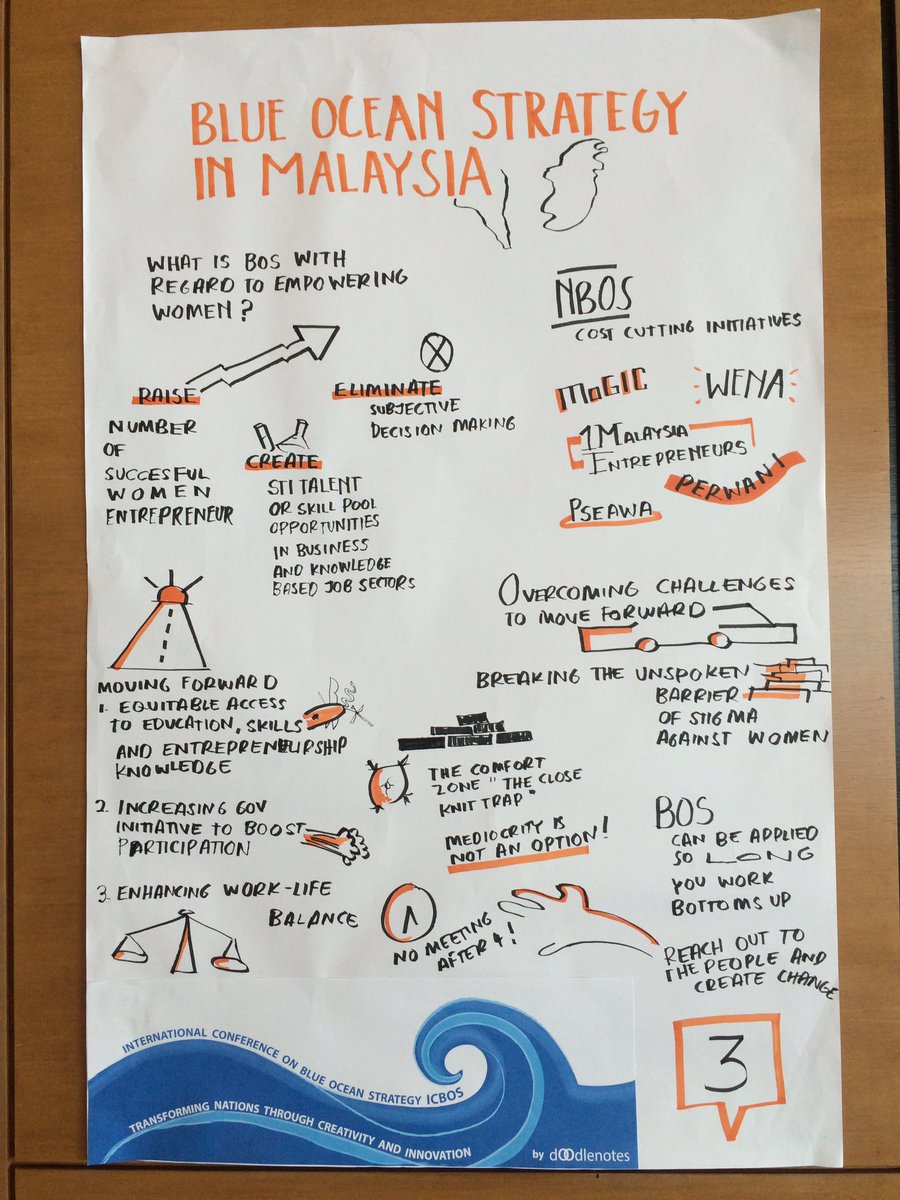 BLUE OCEAN STRATEGY
IN MALAYSIA
WHAT IS BOS WITH
REGARD TO EMPOWERING
WOMEN?
RAISE
NUMBER
OF
SUCCESFUL
WOMEN
ENTREPRENEUR
ELIMINATE
SUBJECTIVE
DECISION MAKING
CREATE
STI TALENT
OR SKILL POOL
OPPORTUNITIES
IN BUSINESS
AND KNOWLEDGE
BASED JOB SECTORS
NBOS
COST CUTTING INITIATIVES
MaGIC
WENA
1MALAYSIA
ENTREPRENEURS
PERWANI
PSEAWA
OVERCOMING CHALLENGES
TO MOVE FORWARD
BREAKING THE UNSPOKEN
BARRIER
OF STIGMA
AGAINST WOMEN
MOVING FORWARD
1. EQUITABLE ACCESS
TO EDUCATION, SKILLS
AND ENTREPRENEURSHIP
KNOWLEDGE
2. INCREASING GOV
INITIATIVE TO BOOST
PARTICIPATION
3. ENHANCING WORK-LIFE
BALANCE
THE COMFORT
ZONE "THE CLOSE
KNIT TRAP"
MEDIOCRITY IS
NOT AN OPTION!
NO MEETING
AFTER 4!
BOS
CAN BE APPLIED
SO LONG
YOU WORK
BOTTOMS UP
REACH OUT TO
THE PEOPLE AND
CREATE CHANGE
3
INTERNATIONAL CONFERENCE ON BLUE OCEAN STRATEGY ICBOS
TRANSFORMING NATIONS THROUGH CREATIVITY AND INNOVATION
by dOOdlenotes